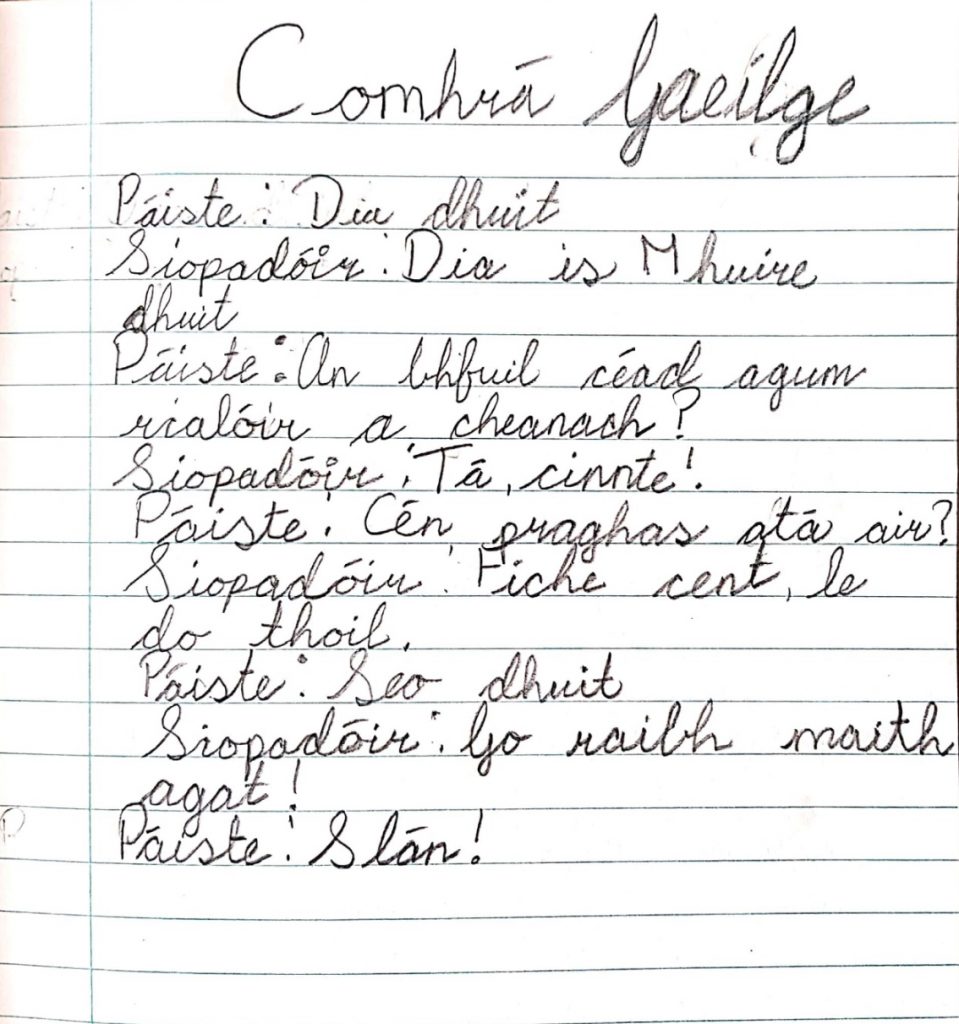 Comhrá Gaeilge
Páiste: Dia dhuit
Siopadóir: Dia is Mhuire
dhuit
Páiste: An bhfuil céad agum
rialóir a cheanach?
Siopadóir: Tá, cinnte!
Páiste: Cén praghas atá air?
Siopadóir: Fiche cent, le
do thoil.
Páiste: Seo dhuit
Siopadóir: Go raibh maith
agat!
Páiste: Slán!